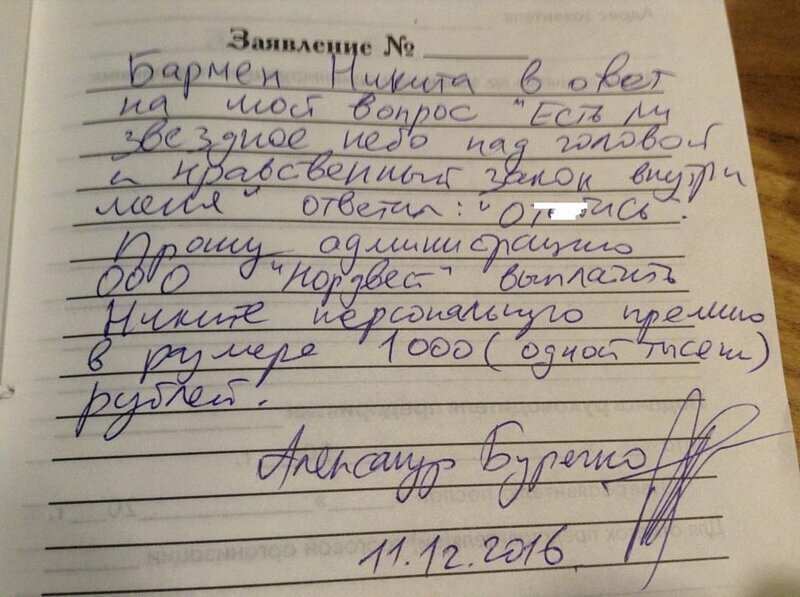 Заявление № ________
Бармен Никита в овет
на мой вопрос "Есть ли
звездное небо над головой
и нравственный закон внутри
меня" ответил: "От тись".
Прошу администрацию
ООО "Нордвест" выплатить
Никите персональную премию
в размере 1000 (одной тысячи)
рублей.
Александр Буречко
11.12.2016